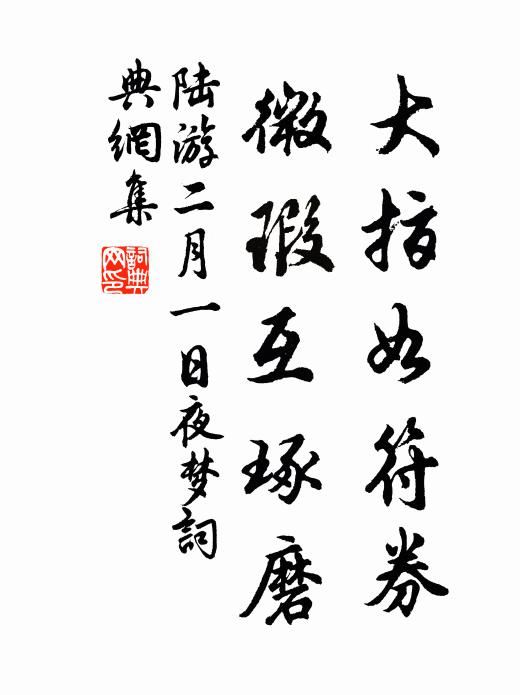 大指如符券
微瑕互琢磨
陆游二月一日夜梦詞
典網集
詞典
网印